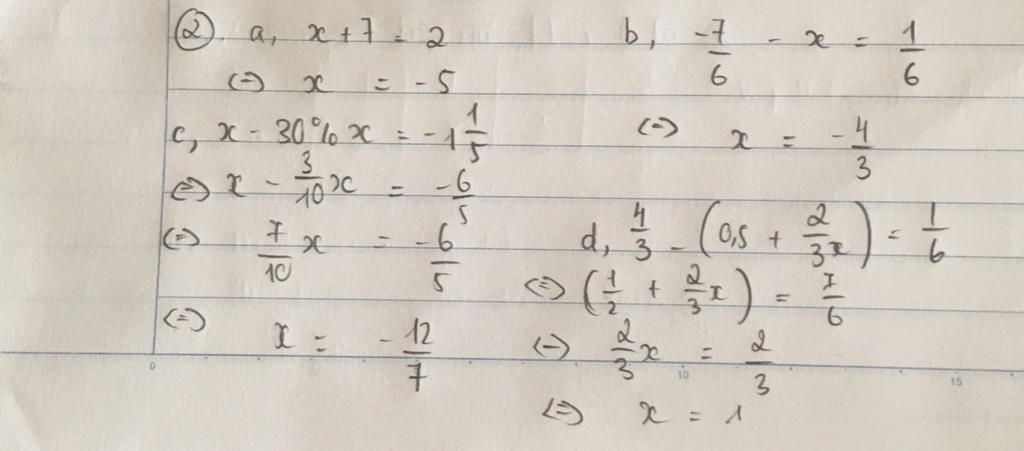 ② a, x + 7 = 2
<=> x = -5
b, -7/6 - x = 1/6
<=> x = -4/3
c, x - 30% x = -1 1/5
<=> x - 3/10 x = -6/5
<=> 7/10 x = -6/5
<=> x = -12/7
d, 4/3 - (0,5 + 2/3x) = 1/6
<=> (1/2 + 2/3 x) = 7/6
<=> 2/3 x = 2/3
<=> x = 1
0 10 15